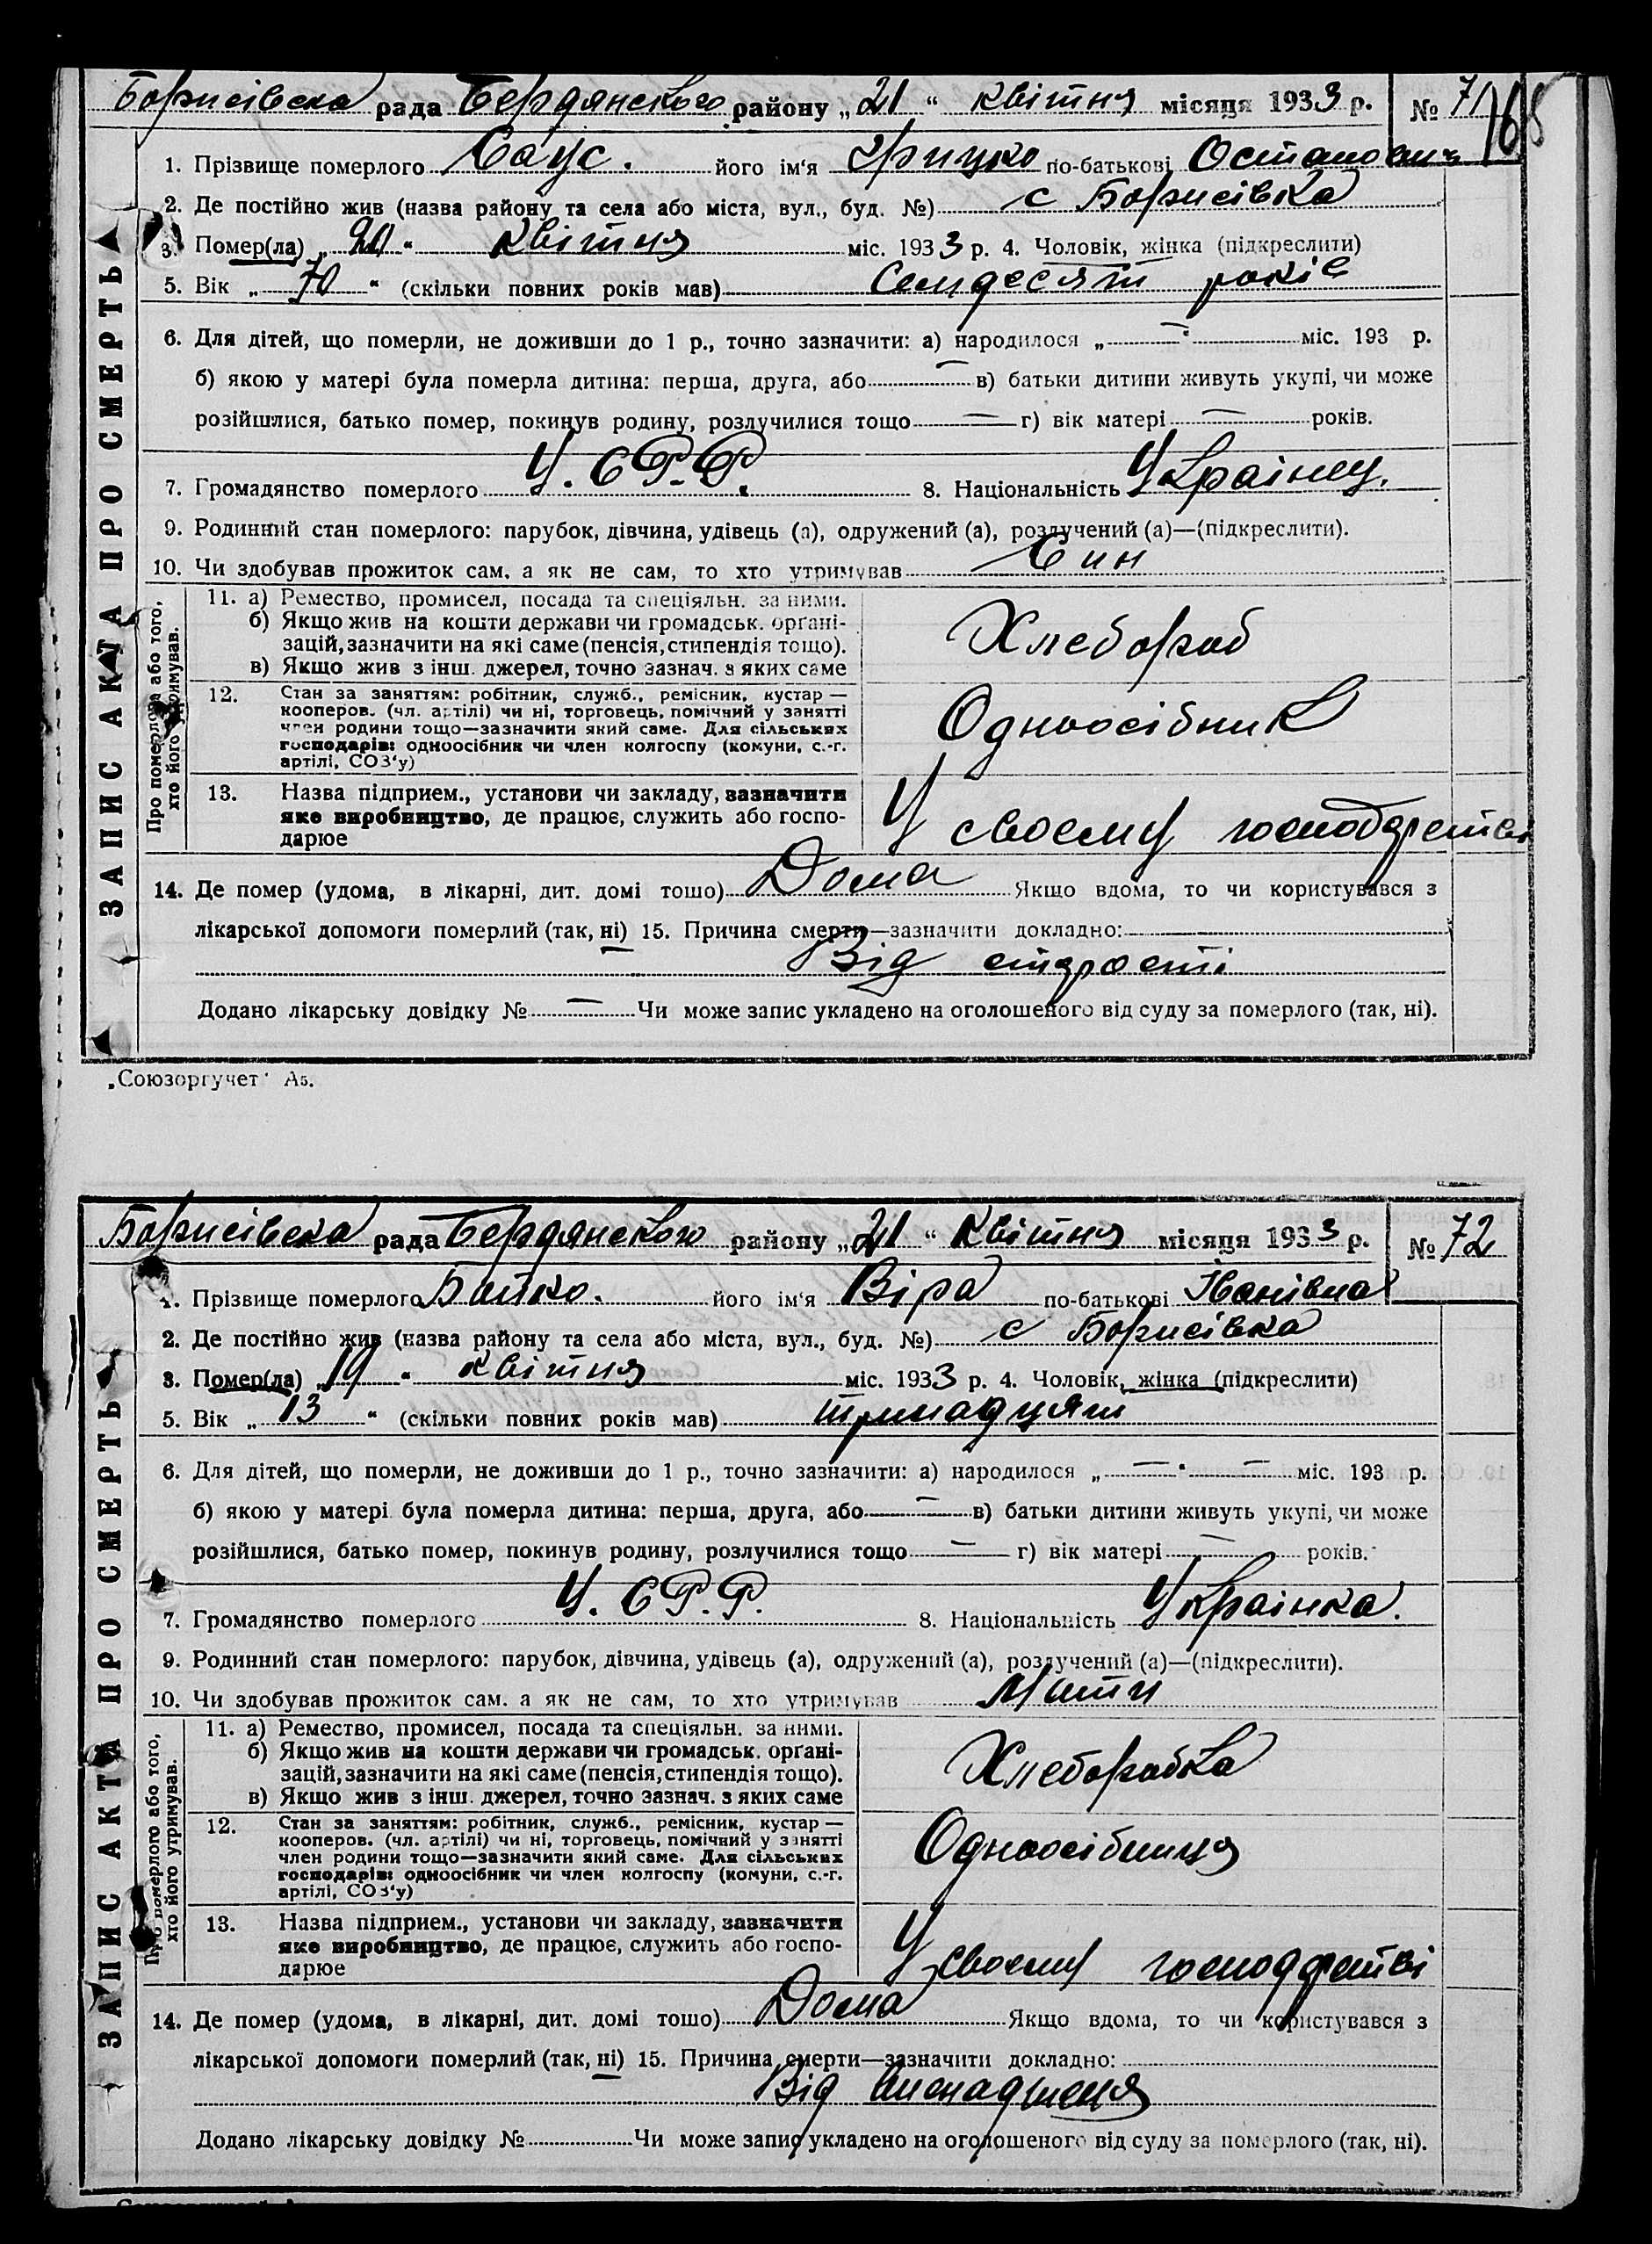 Борисівска рада Бердянского району „21“ квітня місяця 1933 р. № 71
165
1. Прізвище померлого Саус. його ім'я Грицко по-батькові Остапович
2. Де постійно жив (назва району та села або міста, вул., буд. №) с Борисівка
3. Помер(ла) „20“ квітня міс. 1933 р. 4. Чоловік, жінка (підкреслити)
5. Вік „70“ (скільки повних років мав) Семдесят років
6. Для дітей, що померли, не доживши до 1 р., точно зазначити: а) народилося „—“ міс. 193 р.
б) якою у матері була померла дитина: перша, друга, або — в) батьки дитини живуть укупі, чи може
розійшлися, батько помер, покинув родину, розлучилися тощо — г) вік матері — років.
7. Громадянство померлого У.С.Р.Р. 8. Національність Українец.
9. Родинний стан померлого: парубок, дівчина, удівець (а), одружений (а), розлучений (а)—(підкреслити).
10. Чи здобував прожиток сам, а як не сам, то хто утримував Син
ЗАПИС АКТА ПРО СМЕРТЬ
Про померлого або того, хто його утримував.
11. а) Ремество, промисел, посада та спеціяльн. за ними.
б) Якщо жив на кошти держави чи громадськ. органі-
зацій, зазначити на які саме (пенсія, стипендія тощо).
в) Якщо жив з інш. джерел, точно зазнач. з яких саме
Хлебороб
12. Стан за заняттям: робітник, служб., ремісник, кустар —
кооперов. (чл. артілі) чи ні, торговець, помічний у занятті
член родини тощо—зазначити який саме. Для сільських
господарів: одноосібник чи член колгоспу (комуни, с.-г.
артілі, СОЗ'у)
Одноосібник
13. Назва підприєм., установи чи закладу, зазначити
яке виробництво, де працює, служить або госпо-
дарює
У своему господарстві
14. Де помер (удома, в лікарні, дит. домі тощо) Дома Якщо вдома, то чи користувався з
лікарської допомоги померлий (так, ні) 15. Причина смерти—зазначити докладно:
Від старості
Додано лікарську довідку № — Чи може запис укладено на оголошеного від суду за померлого (так, ні).
„Союзоргучет“ А5.
Борисівска рада Бердянского району „21“ квітня місяця 1933 р. № 72
1. Прізвище померлого Байко. його ім'я Віра по-батькові Іванівна
2. Де постійно жив (назва району та села або міста, вул., буд. №) с Борисівка
3. Помер(ла) „19“ квітня міс. 1933 р. 4. Чоловік, жінка (підкреслити)
5. Вік „13“ (скільки повних років мав) тринадцят
6. Для дітей, що померли, не доживши до 1 р., точно зазначити: а) народилося „—“ — міс. 193 р.
б) якою у матері була померла дитина: перша, друга, або — в) батьки дитини живуть укупі, чи може
розійшлися, батько помер, покинув родину, розлучилися тощо — г) вік матері — років.
7. Громадянство померлого У.С.Р.Р. 8. Національність Українка.
9. Родинний стан померлого: парубок, дівчина, удівець (а), одружений (а), розлучений (а)—(підкреслити).
10. Чи здобував прожиток сам, а як не сам, то хто утримував Мати
ЗАПИС АКТА ПРО СМЕРТЬ
Про померлого або того, хто його утримував.
11. а) Ремество, промисел, посада та спеціяльн. за ними.
б) Якщо жив на кошти держави чи громадськ. органі-
зацій, зазначити на які саме (пенсія, стипендія тощо).
в) Якщо жив з інш. джерел, точно зазнач. з яких саме
Хлеборобка
12. Стан за заняттям: робітник, служб., ремісник, кустар —
кооперов. (чл. артілі) чи ні, торговець, помічний у занятті
член родини тощо—зазначити який саме. Для сільських
господарів: одноосібник чи член колгоспу (комуни, с.-г.
артілі, СОЗ'у)
Одноосібниця
13. Назва підприєм., установи чи закладу, зазначити
яке виробництво, де працює, служить або госпо-
дарює
У своему господарстві
14. Де помер (удома, в лікарні, дит. домі тощо) Дома Якщо вдома, то чи користувався з
лікарської допомоги померлий (так, ні) 15. Причина смерти—зазначити докладно:
Від
Додано лікарську довідку № Чи може запис укладено на оголошеного від суду за померлого (так, ні).